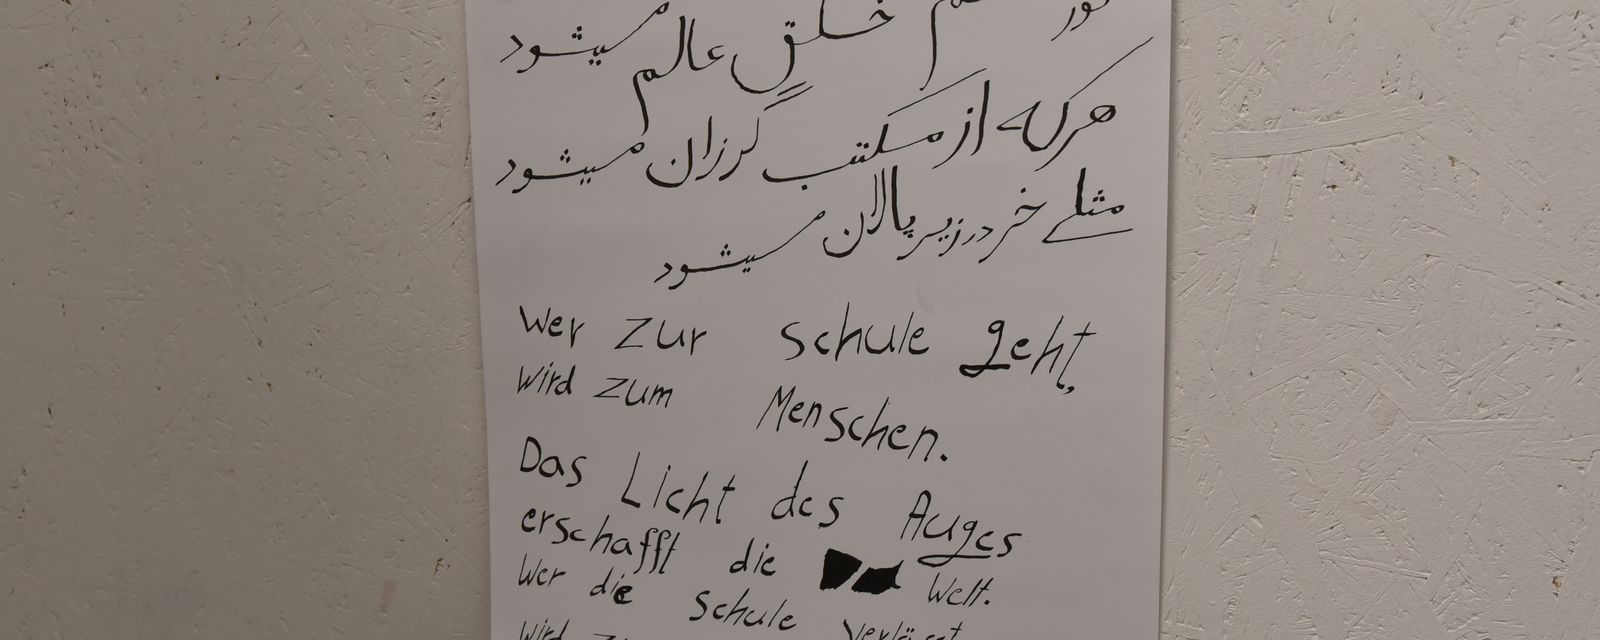 نور خلقِ عالم میشود
هرکه از مکتب گرزان میشود
مثلے خر در زیر پالان میشود
Wer zur Schule geht,
wird zum Menschen.
Das Licht des Auges
erschafft die Welt.
Wer die Schule verlässt
wird